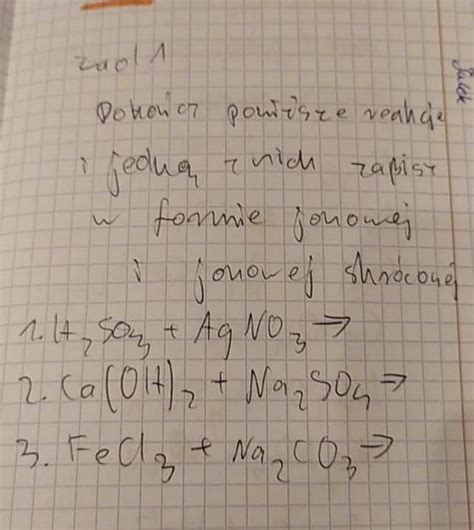 zad 1
Dokończ poniższe reakcje
i jedną z nich zapisz
w formie jonowej
i jonowej skróconej
1. H₂SO₃ + AgNO₃ →
2. Ca(OH)₂ + Na₂SO₄ →
3. FeCl₃ + Na₂CO₃ →